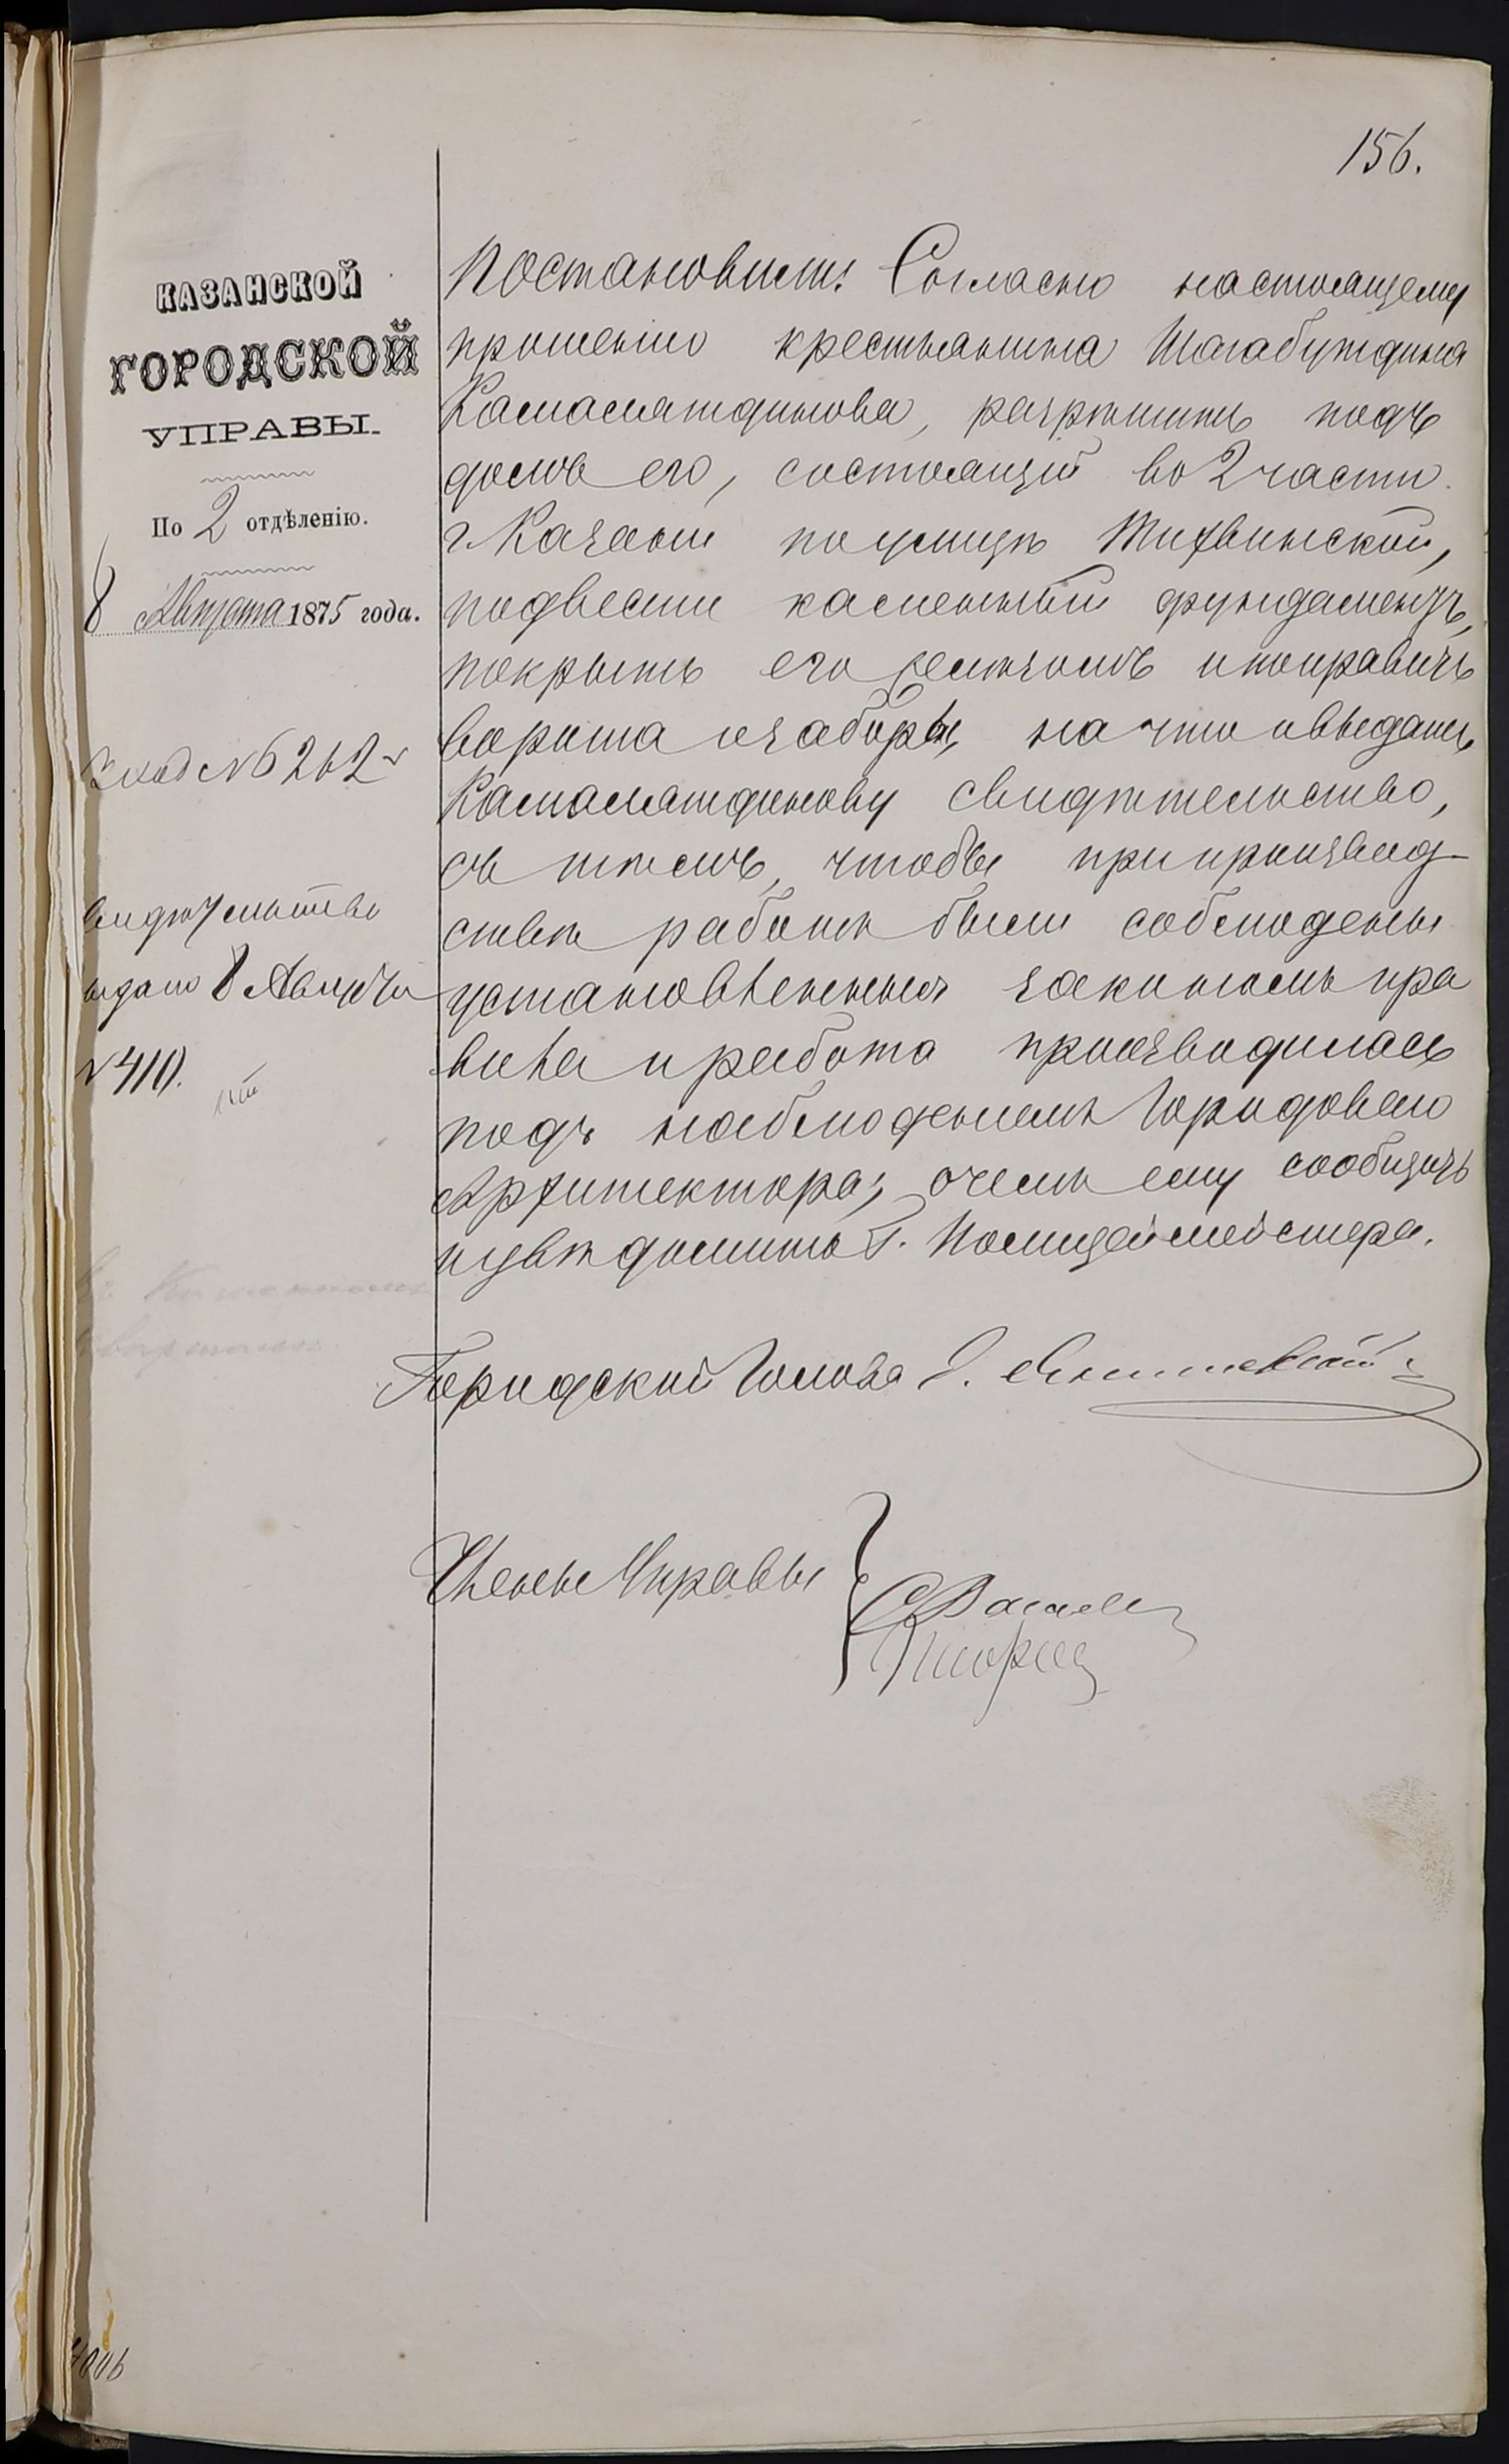 156.
КАЗАНСКОЙ
ГОРОДСКОЙ
УПРАВЫ.
По 2 отдѣленію.
8 Августа 1875 года.
Вход № 6262
видѣтельство
выдано 8 Августа
№ 410.
Постановили: Согласно настоящему
прошенію крестьянина Шагабутдина
Камалятдинова, разрѣшить подъ
домъ его, состоящій во 2 части
г. Казани по улицѣ Тихвинской,
подвести каменный фундаментъ,
покрыть его тесомъ и поправить
ворота и заборъ, на что и выдать
Камалятдинову свидѣтельство,
съ тѣмъ, чтобы при производ-
ствѣ работъ были соблюдены
установленныя закономъ пра
вила и работа производилась
подъ наблюденіемъ Городоваго
Архитектора; о чемъ ему сообщить
и увѣдомить Г. Полицеймейстера.
Городской Голова Э. Янишевскій
Члены Управы